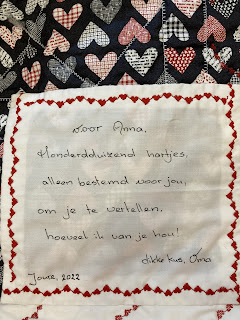 Voor Anna,
Honderdduizend hartjes,
alleen bestemd voor jou,
om je te vertellen,
hoeveel ik van je hou!
dikke kus, Oma
Joure, 2022